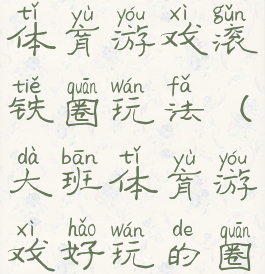 tǐ yù yóu xì gǔn
体育游戏滚
tiě quān wán fǎ
铁圈玩法（
dà bān tǐ yù yóu
大班体育游
xì hǎo wán de quān
戏好玩的圈